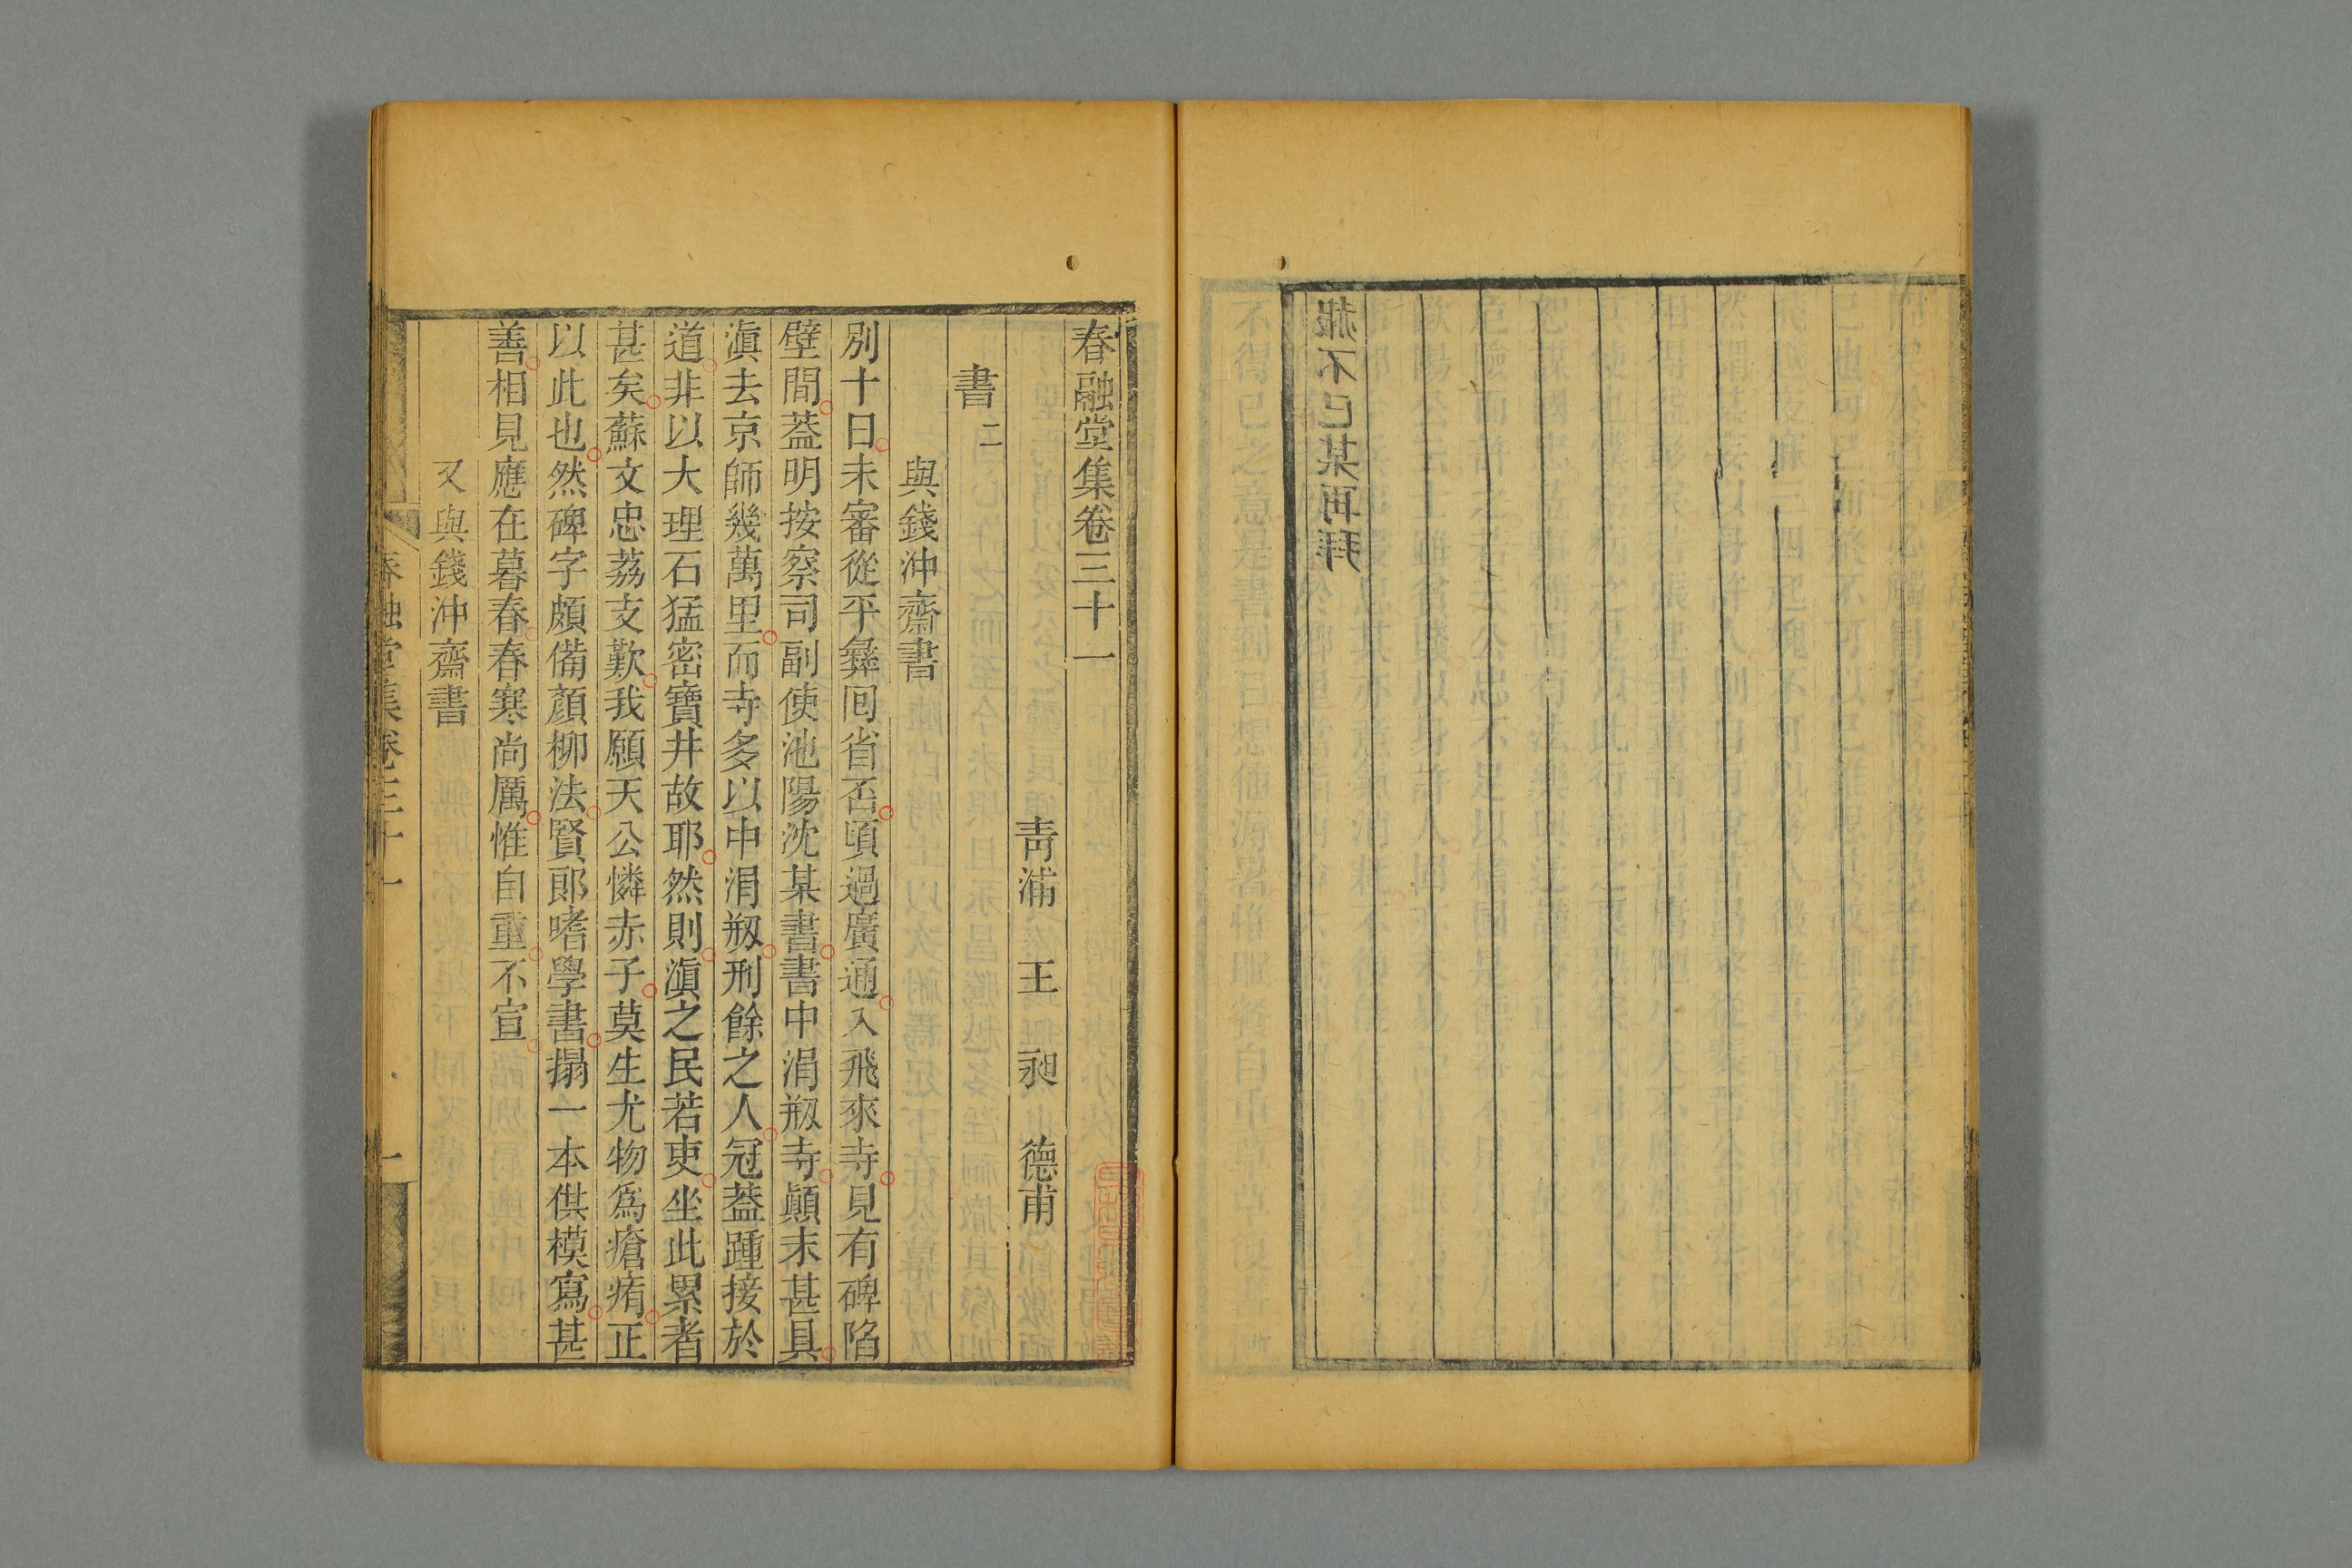 赧不已某再拜
春融堂集卷三十一
青浦 王 昶 德甫
書二
與錢沖齋書
別十日未審從平彝囘省否頃過廣通入飛來寺見有碑陷
壁間葢明按察司副使池陽沈某書書中涓剏寺顚末甚具
滇去京師幾萬里而寺多以中涓剏刑餘之人冠葢踵接於
道非以大理石猛密寶井故耶然則滇之民若吏坐此累者
甚矣蘇文忠荔支歎我願天公憐赤子莫生尤物爲瘡痏正
以此也然碑字頗備顏柳法賢郎嗜學書搨一本供模寫甚
善相見應在暮春春寒尚厲惟自重不宣
又與錢沖齋書
春融堂集卷三十一
一